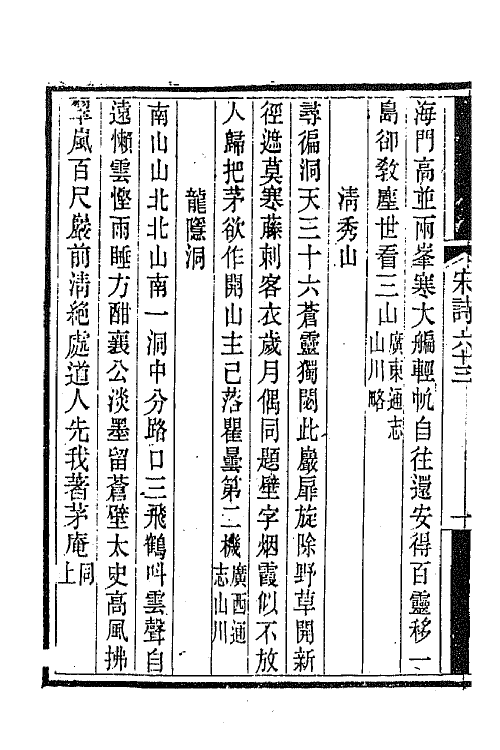 海門高並兩峯寒大艑輕帆自往還安得百靈移一
島卻敎塵世看三山廣東通志山川略
淸秀山
尋徧洞天三十六蒼靈獨閟此巖扉旋除野草開新
徑遮莫寒藤刺客衣歲月偶同題壁字烟霞似不放
人歸把茅欲作開山主已落瞿曇第二機廣西通志山川
龍隱洞
南山山北北山南一洞中分路口三飛鶴叫雲聲自
遠懶雲慳雨睡方酣襄公淡墨留蒼壁太史高風拂
翠嵐百尺巖前淸絶處道人先我著茅庵同上
宋詩六十三